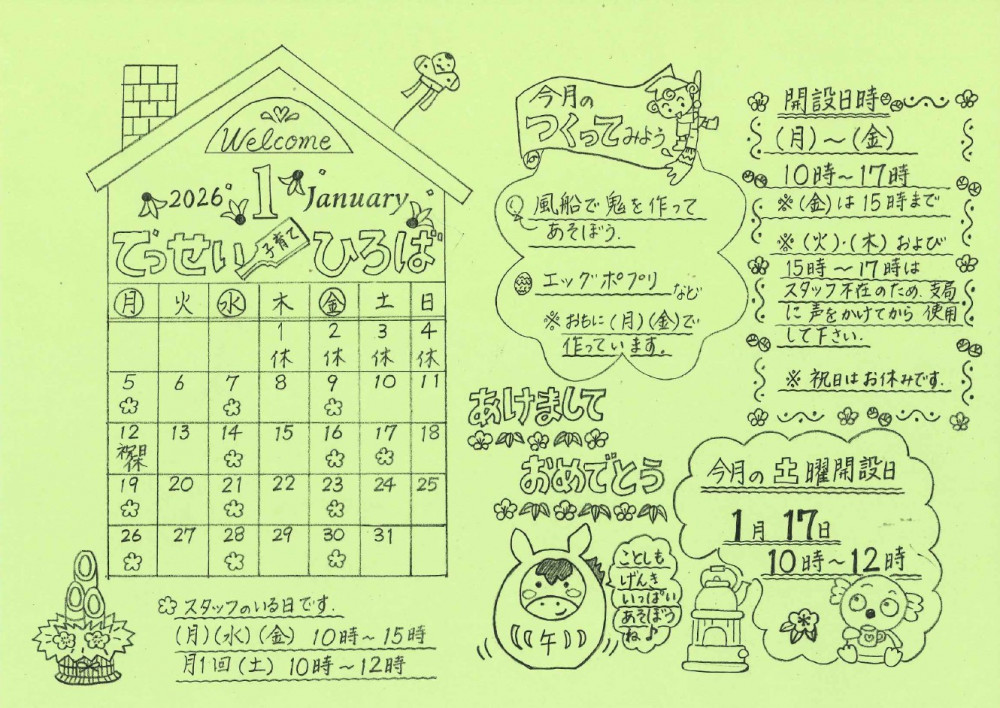 Welcome
2026 1 January
てっせい子育てひろば
月 火 水 木 金 土 日
1 2 3 4
休 休 休 休
5 6 7 8 9 10 11
12 13 14 15 16 17 18
祝日休
19 20 21 22 23 24 25
26 27 28 29 30 31
スタッフのいる日です.
(月)(水)(金) 10時〜15時
月1回(土) 10時〜12時
今月の
つくってみよう
風船で鬼を作って
あそぼう.
エッグポプリ
など
※おもに(月)(金)で
作っています.
あけまして
おめでとう
午
ことしも
げんき
いっぱい
あそぼう
ね♪
開設日時
(月)〜(金)
10時〜17時
※(金)は15時まで
※(火)・(木)および
15時〜17時は
スタッフ不在のため.支局
に声をかけてから使用
して下さい.
※祝日はお休みです.
今月の土曜開設日
1月17日
10時〜12時